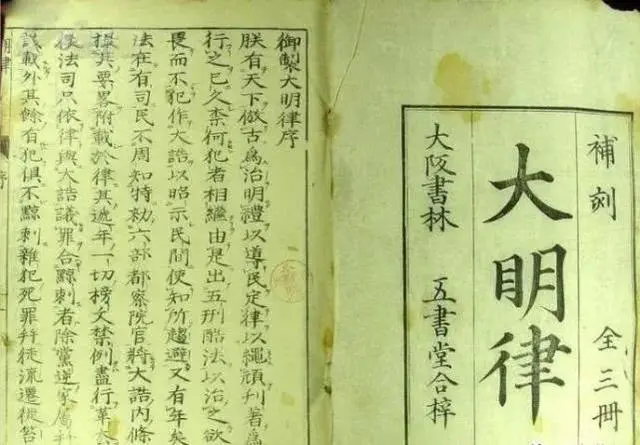 補刻 全三冊
大明律
大阪書林 五書堂合梓
御製大明律序
朕有天下倣古爲治明禮以導民定律以繩頑刊著爲
行之已久柰何犯者相繼由是出五刑酷法以治之欲
畏而不犯作大誥以昭示民間使知所趨避又有年矣
法在有司民不周知特勅六部都察院官將大誥内條
撮其要畧附載於律其遞年一切榜文禁例盡行革
後法司只依律與大誥議罪合黥刺者除黨逆家屬
該載外其餘有犯俱不黥刺雜犯死罪幷徒流遷徙笞
明律 序